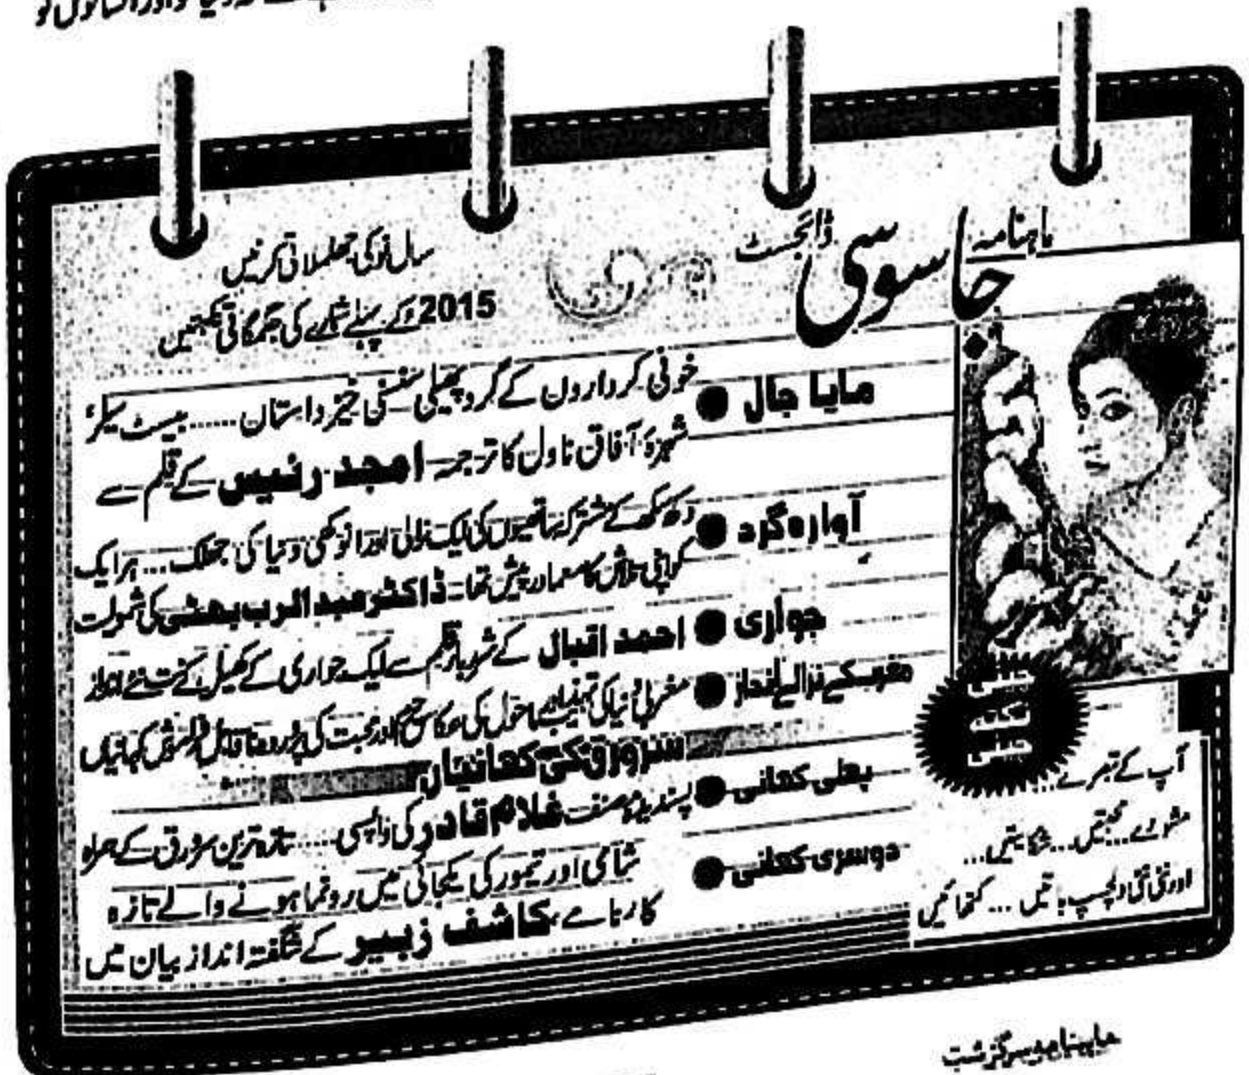 ماہنامہ
جاسوسی
ڈائجسٹ
سال نو کی جھلملاتی کرنیں
2015ء کے پہلے شمارے کی جگمگاتی نکہتیں
مایا جال ● خونی کرداروں کے گرد پھیلی سنسنی خیز داستان ...... بیسٹ سیلر،
شہرۂ آفاق ناول کا ترجمہ۔ امجد رئیس کے قلم سے
آوارہ گرد ● دکھ سکھ کے مشترکہ ساتھیوں کی ایک نرالی اور انوکھی دنیا کی جھلک ... ہر ایک
کو اپنی تلاش کا معما درپیش تھا۔ ڈاکٹر عبدالرب بھٹی کی شمولیت
جواری ● احمد اقبال کے قلم سے ایک جواری کے کھیل کے نت نئے انداز
مغرب کے نرالے انداز ● مغربی دنیا کی تہذیب اور ماحول کی عکاسی اور محبت کی کہانیاں
سرورق کی کہانیاں
پہلی کہانی ● پسندیدہ مصنف غلام قادر کی واپسی ..... تازہ ترین سرورق کے ہمراہ
دوسری کہانی ● شامی اور تیمور کی یکجائی میں رونما ہونے والے تازہ
کارنامے، کاشف زبیر کے شگفتہ انداز بیان میں
آپ کے تبصرے ...
مشورے ... محبتیں ... شکایتیں ...
اور نئی نئی دلچسپ باتیں ... کتھائیں
ماہنامہ سرگزشت